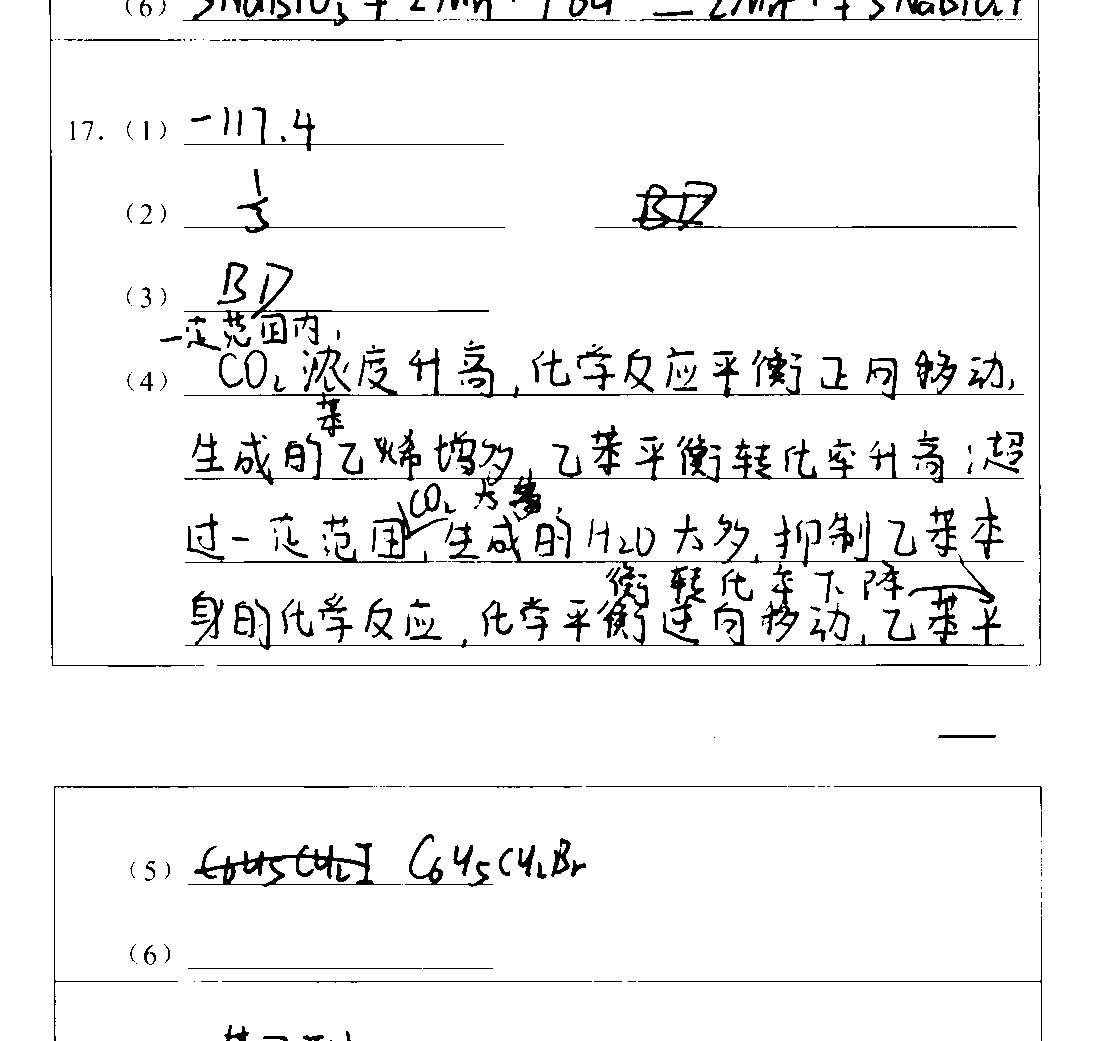 (6) 3NaBiO₃ + 2Mn
17. (1) -117.4
(2) 1/3 BD
(3) BD
一定范围内,
(4) CO₂浓度升高,化学反应平衡正向移动,
苯
生成的乙烯增多,乙苯平衡转化率升高;超
CO₂ 太多,
过一定范围,生成的H₂O太多,抑制乙苯本
衡转化率下降
身的化学反应,化学平衡逆向移动,乙苯平
(5) C₆H₅CH₂I C₆H₅CH₂Br
(6)